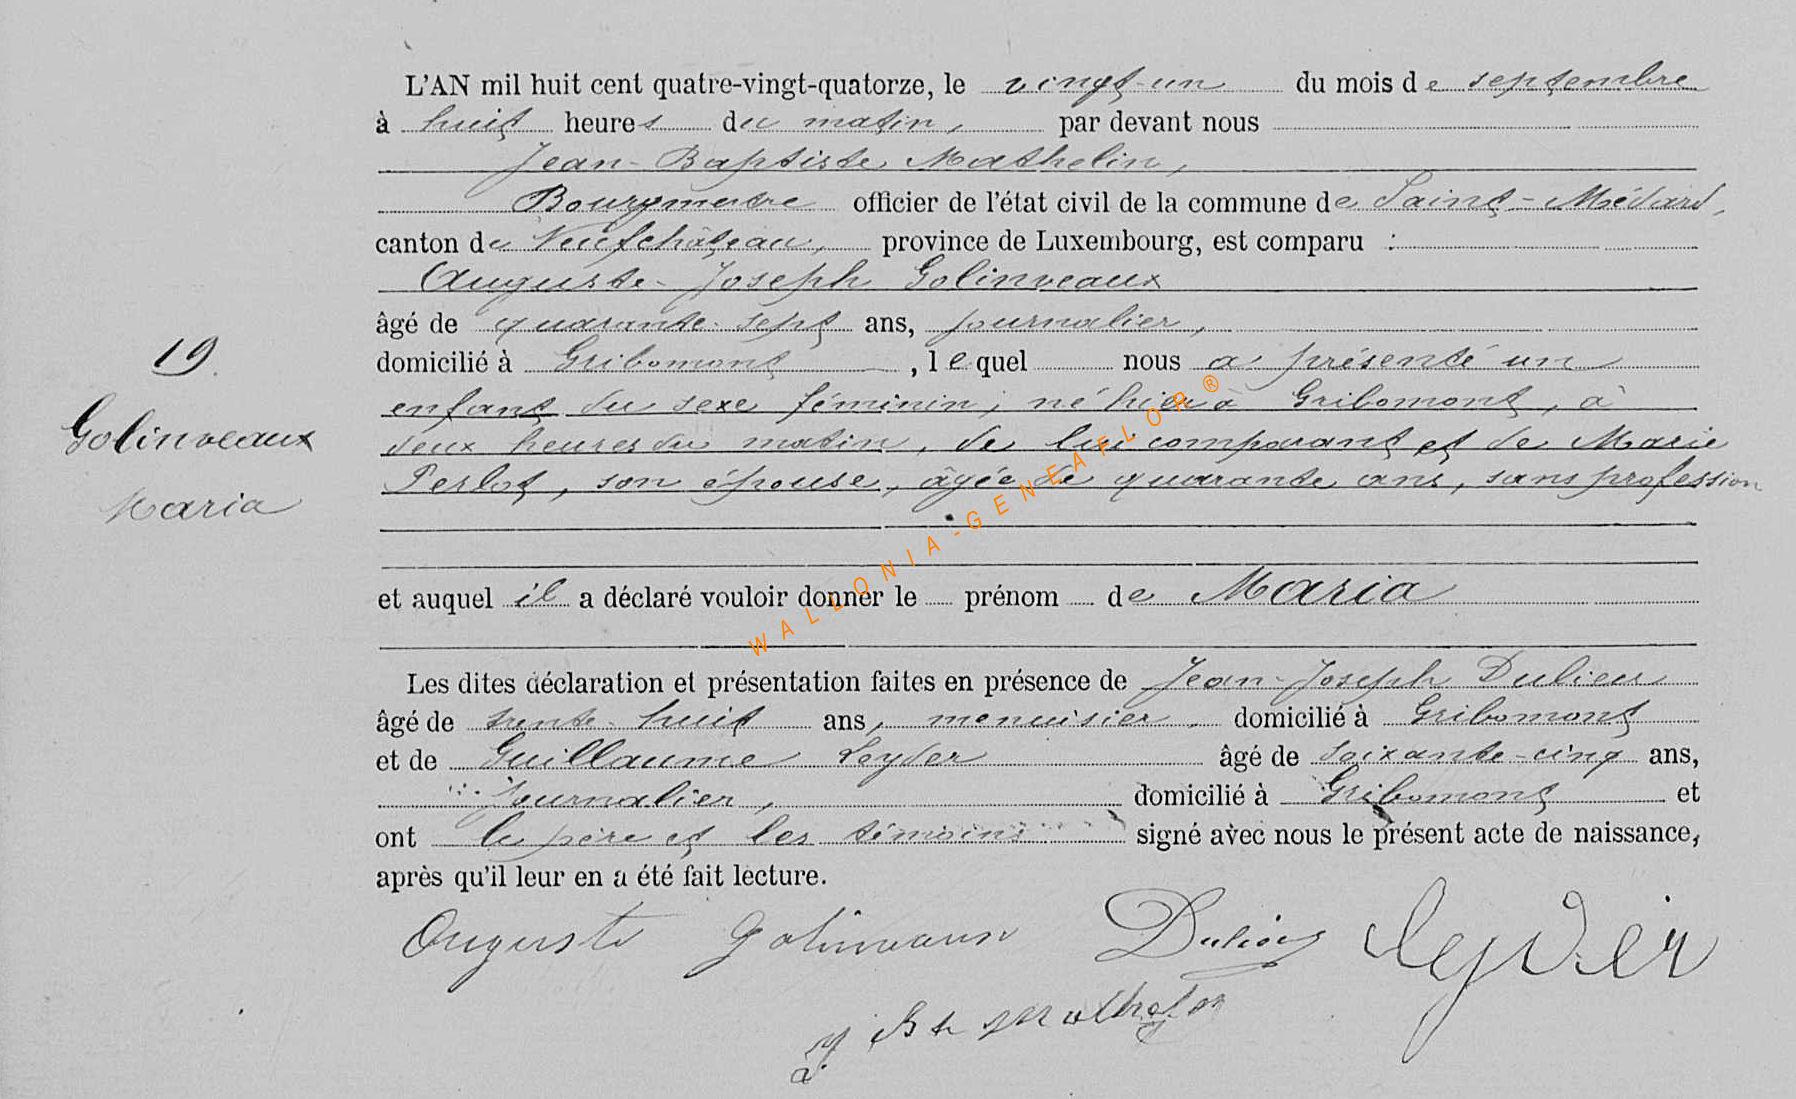 L'AN mil huit cent quatre-vingt-quatorze, le vingt-un du mois de septembre
à huit heures du matin, par devant nous
Jean-Baptiste Mathelin,
Bourgmestre officier de l'état civil de la commune de Saint-Médard,
canton de Neufchâteau, province de Luxembourg, est comparu :
Auguste-Joseph Golinveaux
âgé de quarante-sept ans, journalier,
19.
domicilié à Gribomont, lequel nous a présenté un
enfant du sexe féminin, né hier à Gribomont, à
Golinveaux
deux heures du matin, de lui comparant et de Marie
Perlot, son épouse, âgée de quarante ans, sans profession
Maria
et auquel il a déclaré vouloir donner le prénom de Maria
WALLONIA-GENEAFLOR®
Les dites déclaration et présentation faites en présence de Jean-Joseph Dulieu
âgé de trente-huit ans, menuisier, domicilié à Gribomont
et de Guillaume Leyder âgé de soixante-cinq ans,
journalier, domicilié à Gribomont et
ont le père et les témoins signé avec nous le présent acte de naissance,
après qu'il leur en a été fait lecture.
Auguste Golinvaux Leyder
J Bte Mathelin